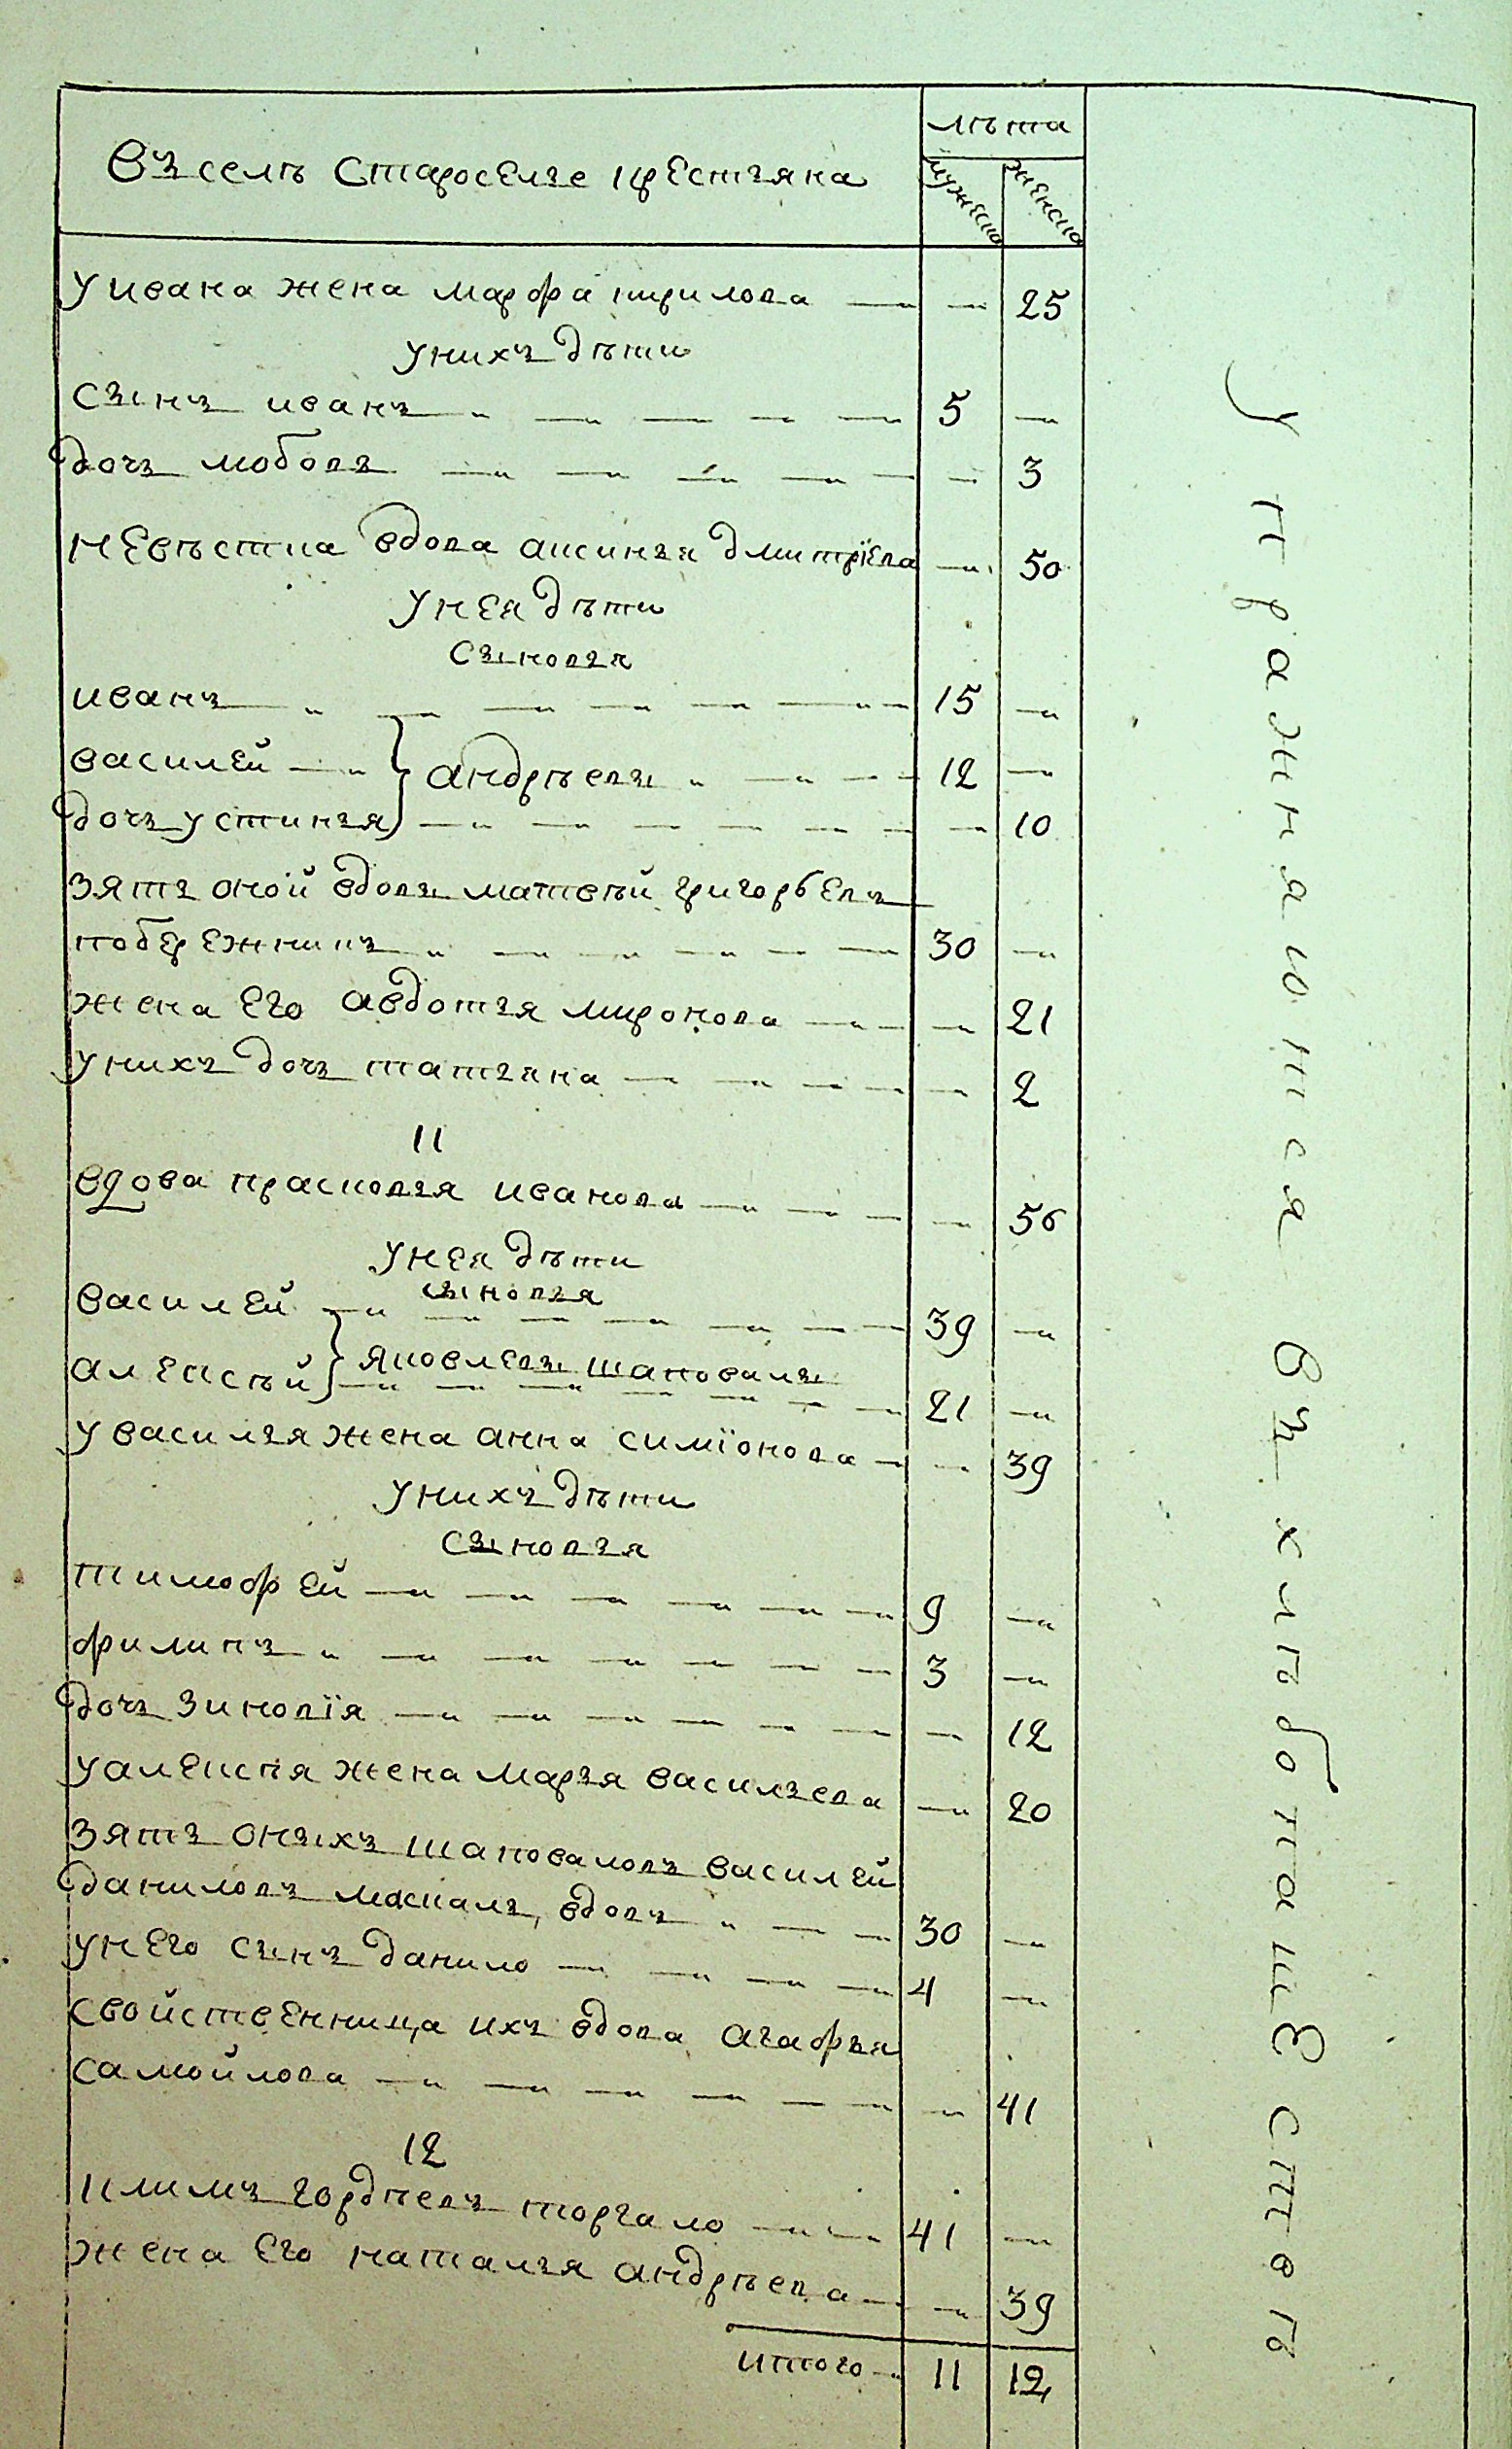 въ селѣ Староселье крестьяна
лѣта
мужеска
женска
у ивана жена марфа кирилова — — 25
у нихъ дѣти
сынъ иванъ — 5 —
дочь любовь — — 3
невѣстка вдова аксинья дмитрїева — 50
у нея дѣти
сыновья
иванъ — 15 —
василей — андрѣевы — 12 —
дочь устинья — — 10
зять оной вдовы матвѣй григорьевъ
побережникъ — 30 —
жена его авдотья миронова — — 21
у нихъ дочь татьяна — — 2
11
вдова прасковья иванова — — 56
у нея дѣти
сыновья
василей — 39 —
алексѣй яковлевы шаповалы — 21 —
у василья жена анна симїонова — — 39
у нихъ дѣти
сыновья
тимофей — 9 —
филипъ — 3 —
дочь зиновїя — — 12
у алексѣя жена марья васильева — 20
зять оныхъ шаповаловъ василей
даниловъ москаль, вдовъ — 30 —
у него сынъ данило — 4 —
свойственница ихъ вдова агафья
самойлова — — 41
12
климъ гордѣевъ торгало — 41 —
жена его наталья андрѣева — — 39
итого — 11 12
упражняются въ хлѣбопашествѣ